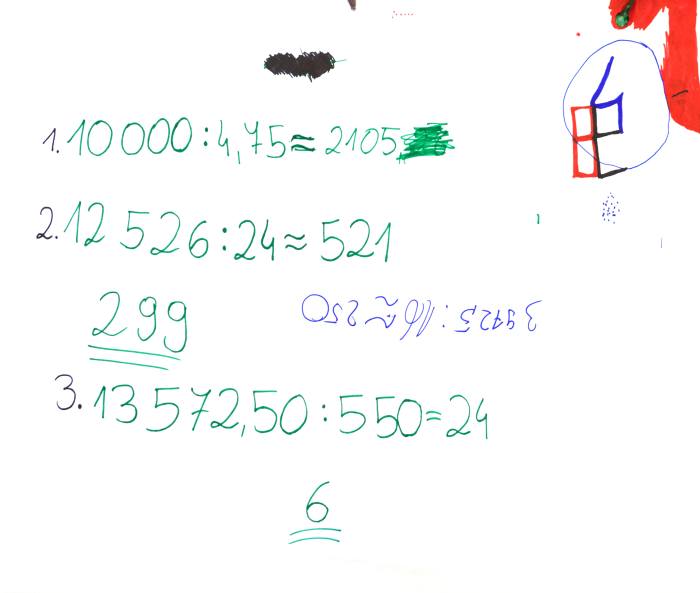 1. 10 000 : 4,75 ≈ 2105
2. 12 526 : 24 ≈ 521
299
3. 13 572,50 : 550 = 24
6